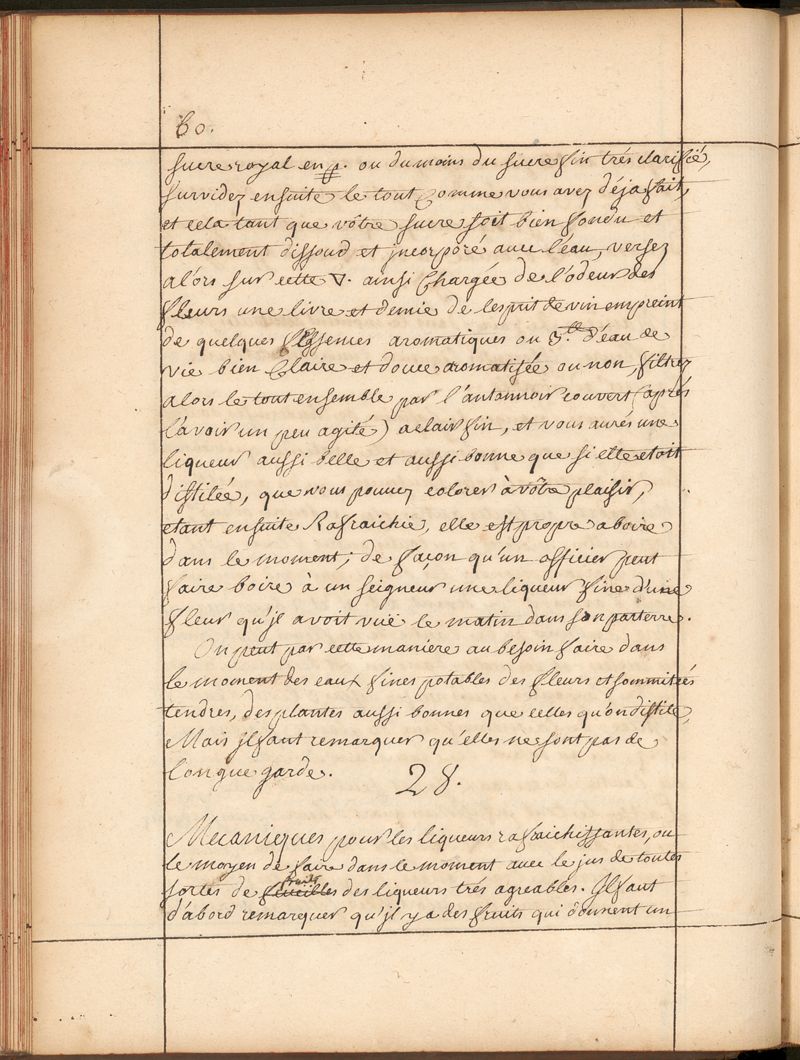 60.
sucre royal en p. ou du moins du sucre fin trés clarifié,
survidez ensuite le tout comme vous avez déja fait,
et cela tant que vôtre sucre soit bien fondu et
totalement dissoud et jncorporé avec l'eau, versez
alors sur cette ▽. ainsi chargée de l'odeur des
fleurs une livre et demie de l'esprit de vin empreint
de quelques Essences aromatiques ou d'eau de
vie bien claire et douce aromatisée ou non, filtrez
alors le tout ensemble par l'antonnoir couvert (aprés
l'avoir un peu agité) a clair fin, et vous aurés une
liqueur aussi belle et aussi bonne que si elle etoit
distilée, que vous pouvez colorer à vôtre plaisir,
etant ensuite Rafraichie, elle est propre a boire
dans le moment; de façon qu'un officier peut
faire boire à un seigneur une liqueur fine d'une
fleur qu'jl avoit vüe le matin dans son parterre.
On peut par cette maniere au besoin faire dans
le moment des eaux fines potables des fleurs et sommités
tendres, des plantes aussi bonnes que celles qu'on distile,
Mais jl faut remarquer qu'elles ne sont pas de
longue garde.
28.
Mecaniques pour les liqueurs rafraichissantes, ou
le moyen de faire dans le moment avec le jus de toutes
fruits
sortes de des liqueurs trés agreables. Jl faut
d'abord remarquer qu'jl y a des fruits qui donnent un